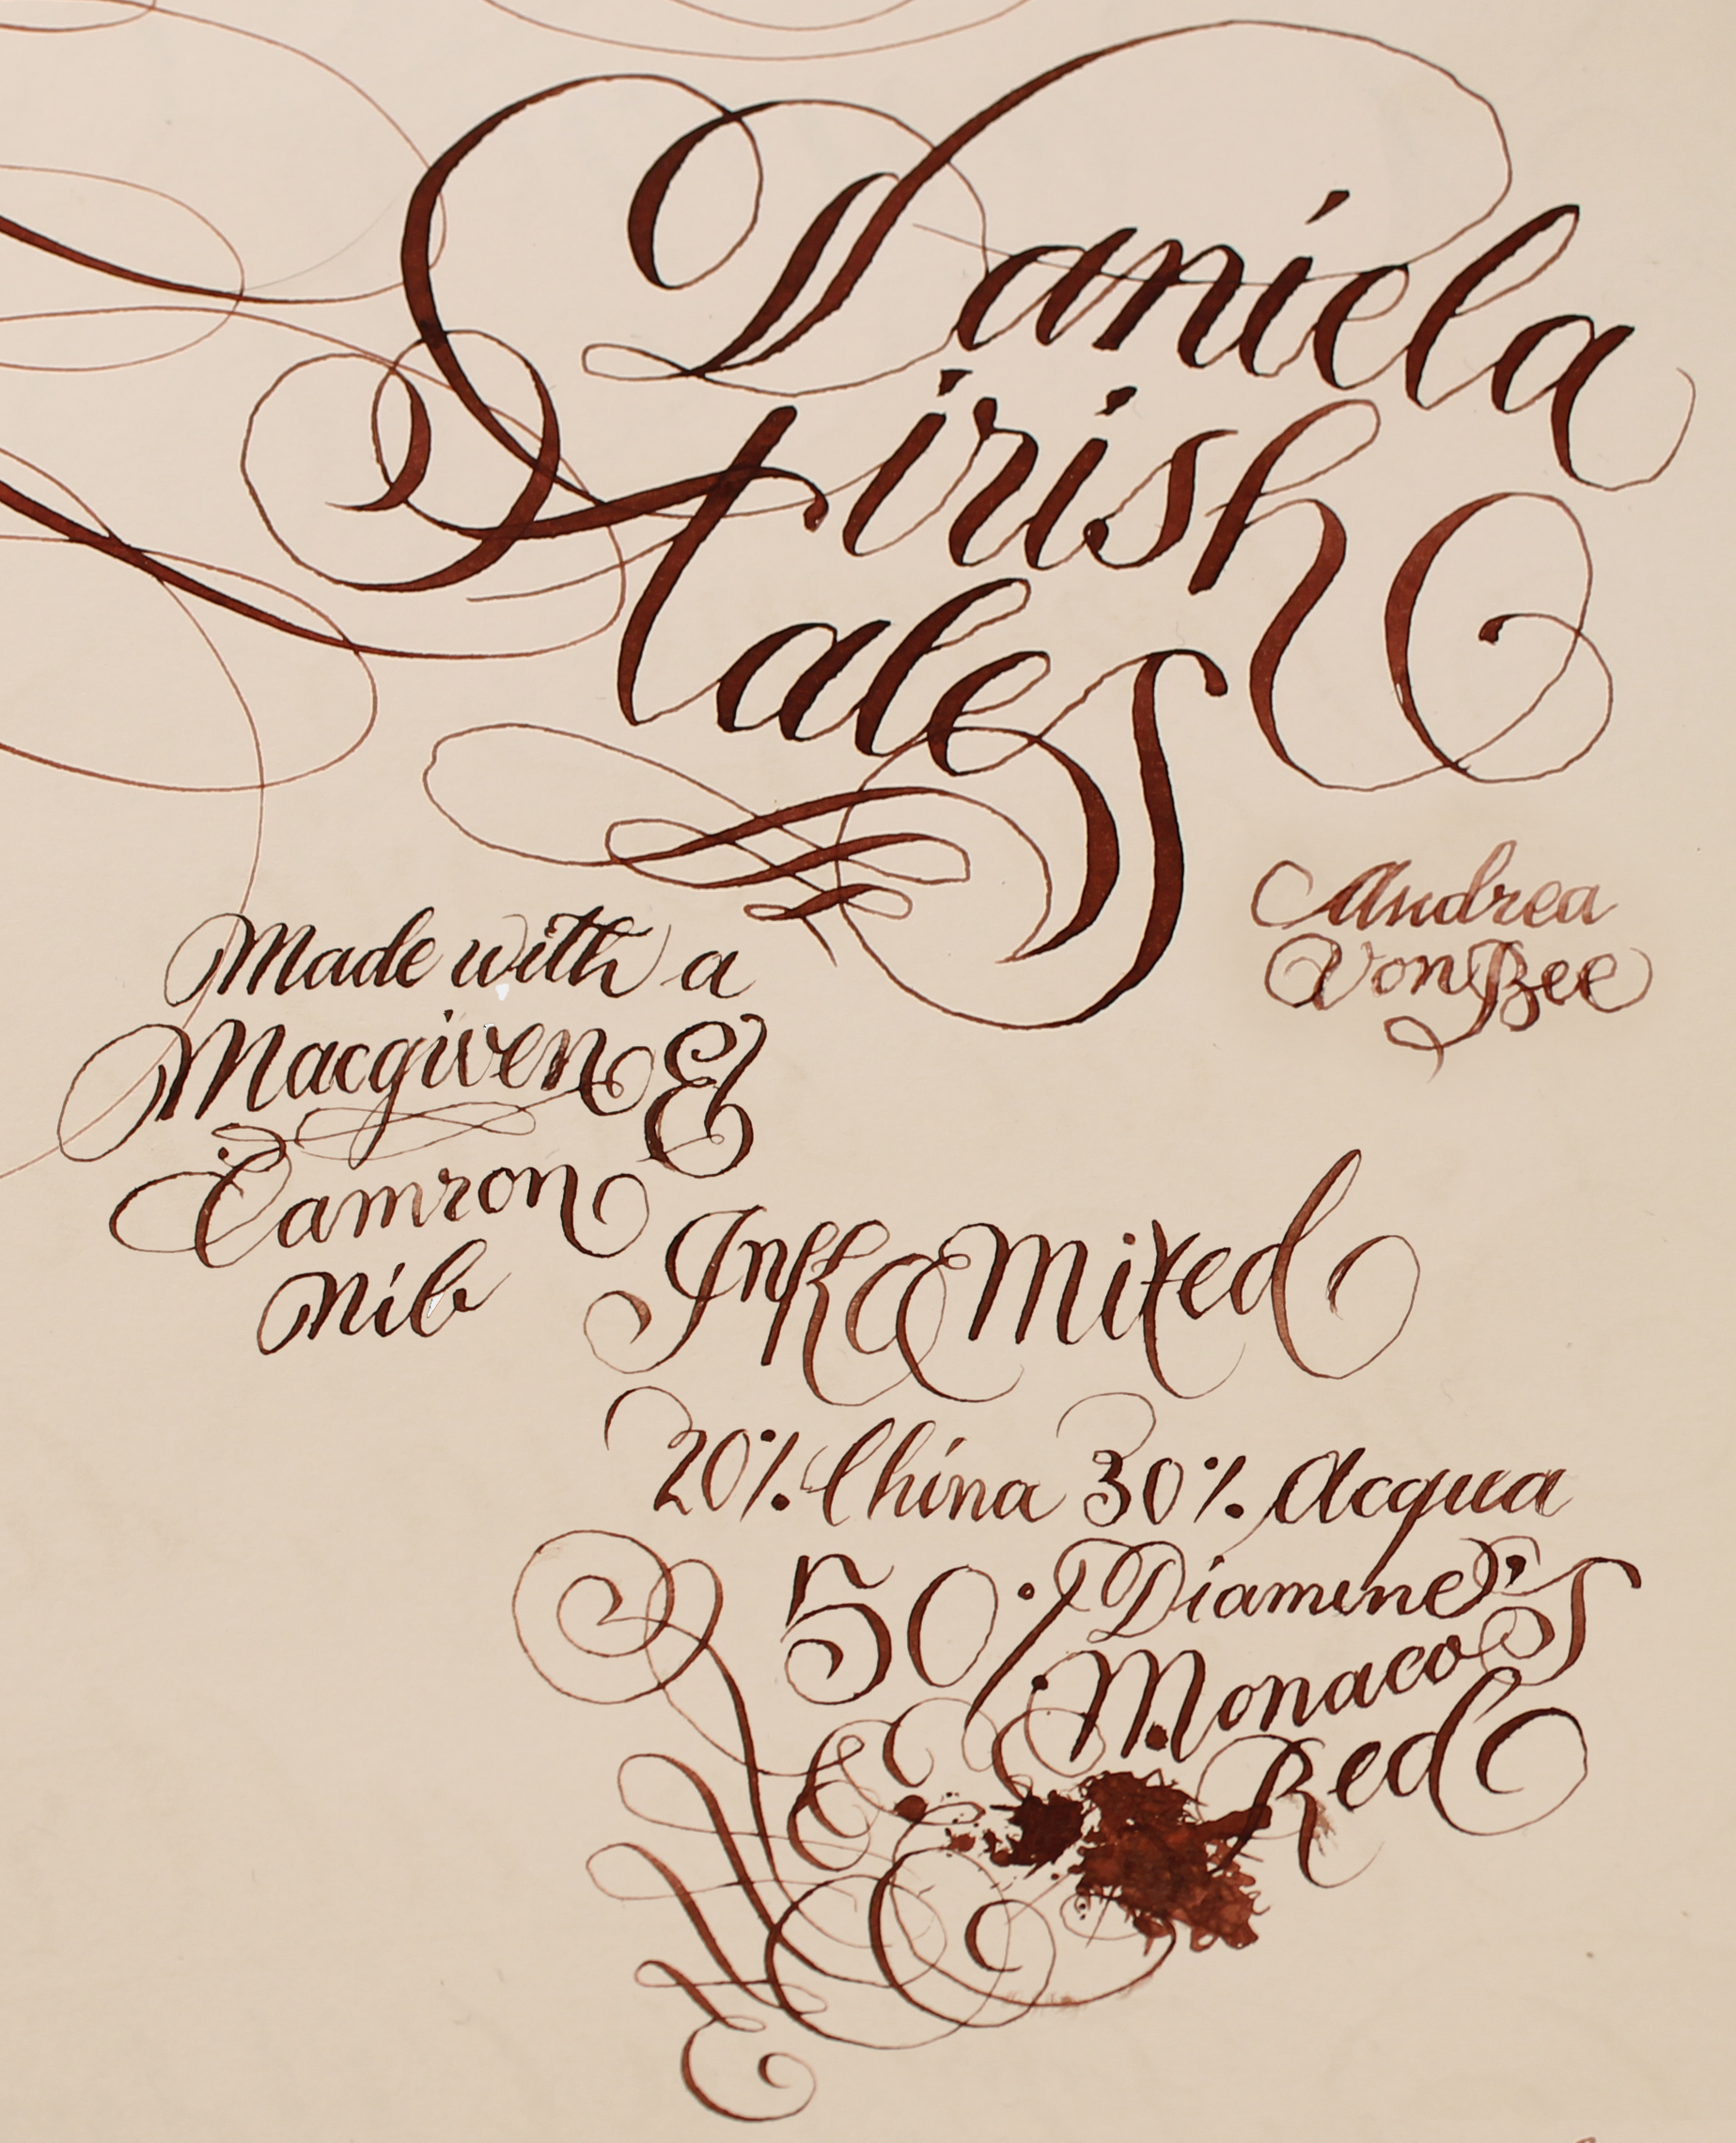 Daniela
irish
tales
Andrea
Von Bee
Made with a
Macgiven &
Camron
Nib
Ink & Mixed
20% China 30% Acqua
50% Diamine's
Monaco
Red